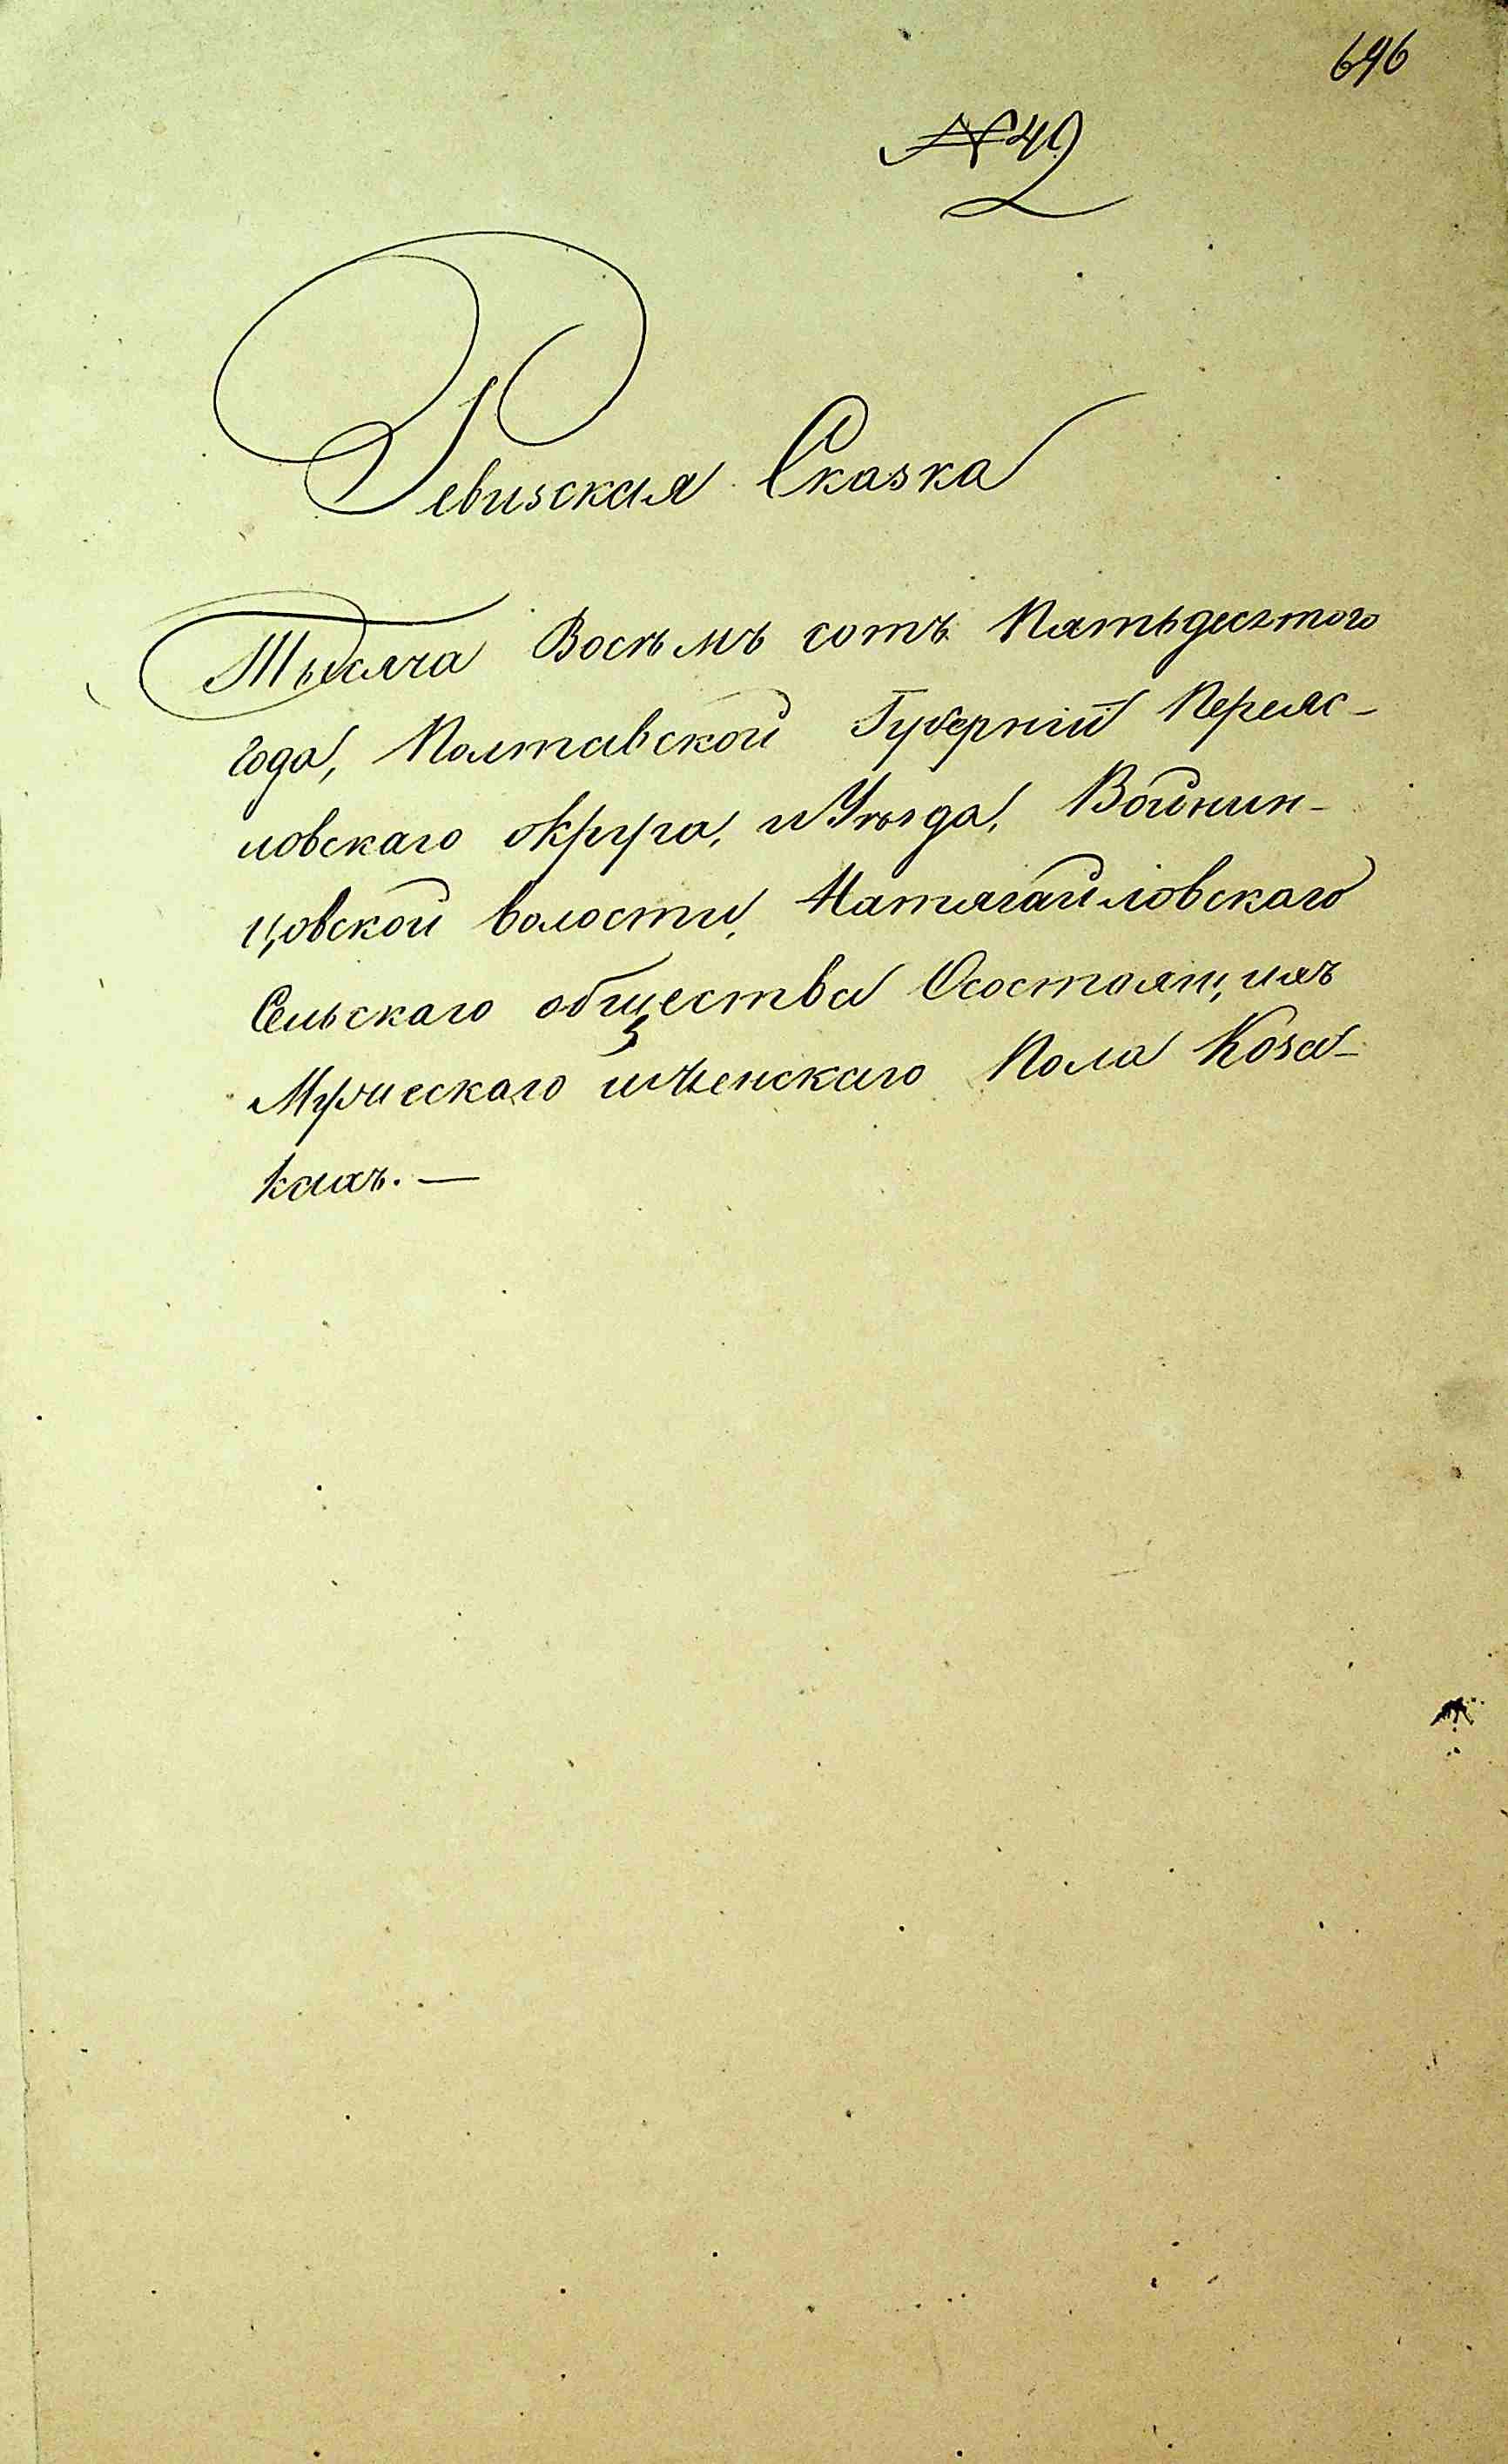 696
№ 42
Ревизская Сказка
Тысяча Восѣмъ сотъ Пятьдесятого
года, Полтавской Губерніи Переяс-
ловскаго округа, и Уѣзда, Войнин-
цовской волости, Матягайловскаго
Сельскаго общества Осостоящихъ
Мужескаго иЖенскаго Пола Коза-
кахъ. —